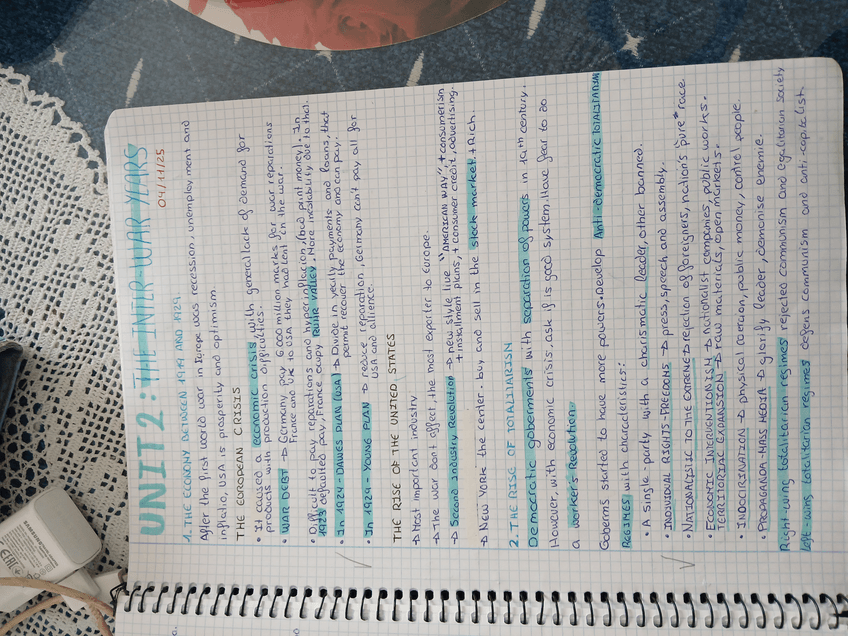 UNIT 2: THE INTER-WAR YEARS
04/11/25
1. THE ECONOMY BETWEEN 1919 AND 1929
After the first world war in Europe was recession, unemployment and
inflatio, USA is prosperity and optimism.
THE EUROPEAN CRISIS
• It caused a economic crisis with general lack of demand for
products with production difficulties.
• WAR DEBT → Germany pay 6.000 million marks for war reparations
France and due to USA they had lent in the war.
• Difficult to pay reparations and hyperinflacion, (bud print money). In
1923 defaulted pay, France occupy RUHR VALLEY. More inestability due to that.
• In 1924 - DAWES PLAN (USA) → Divide in yearly payments and loans, that
permit recover the economy and can pay.
• In 1929 - YOUNG PLAN → reduce reparation, Germany can't pay all for
USA and allience.
THE RISE OF THE UNITED STATES
→ Most important industry
→ The war dont affect, the most exporter to Europe.
→ Second Industry Revolution → new style live "AMERICAN WAY", + consumerism
+ installment plans, + consumer credit, advertising.
→ NEW YORK the center. Buy and sell in the stock market. + Rich.
2. THE RISE OF TOTALITARISM
Democratic goberments with separation of powers in 19th century.
However, with economic crisis. ask if is good system. Have fear to do
a worker's Revolution
Goberms started to have more powers. Develop Anti-democratic TOTALITARIAN
REGIMES with characteristics:
• A single party with a charismatic leader, other banned.
• INDIVIDUAL RIGHTS-FREEDOMS → press, speech and assembly.
• NATIONALISTIC TO THE EXTREME → rejection of foreigners, nation's "pure" race.
• ECONOMIC INTERVENTIONISM → nationalist companies, public works.
TERRITORIAL EXPANSION → raw materials, open markets.
• INDOCTRINATION → physical coercion, public money, control people
• PROPAGANDA-MASS MEDIA → glorify leader, demonise enemie.
Right-wing totalitarian regimes rejected communism and egalitarian society
left-wing totalitarian regimes defens communism and anti-capitalist.
SAMSUNG